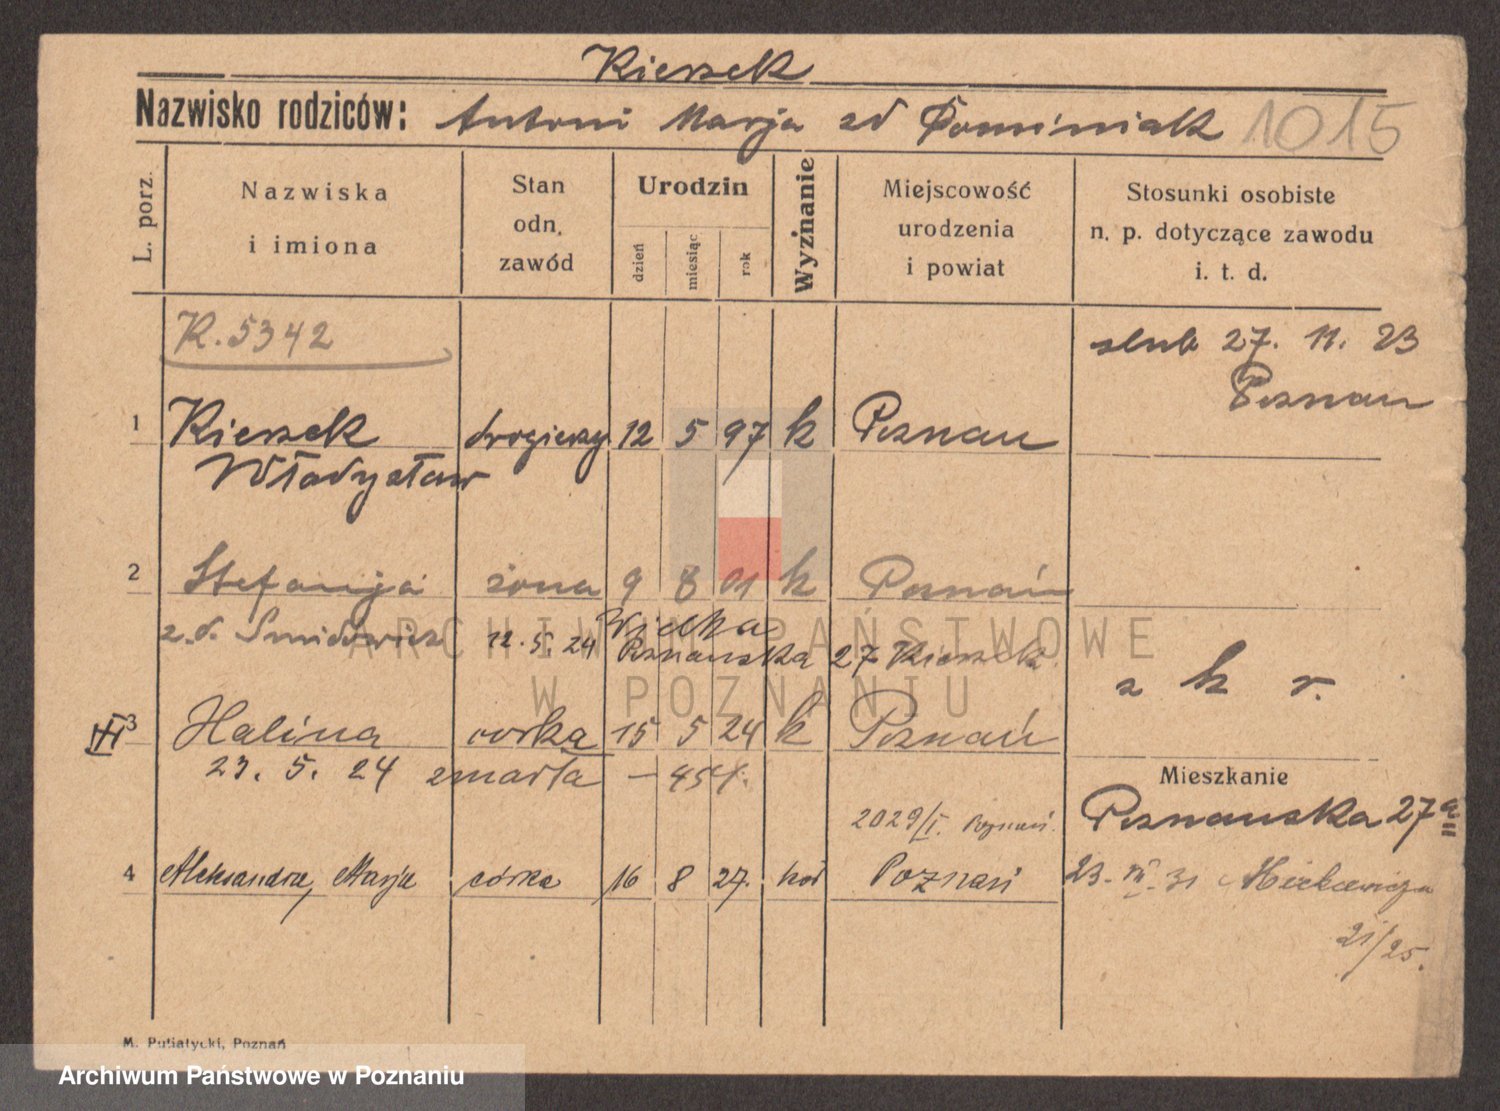 Kierzek
Nazwisko rodziców: Antoni Marja zd Dominiak 1015
L. porz.
Nazwiska
i imiona
Stan
odn.
zawód
Urodzin
dzień
miesiąc
rok
Wyznanie
Miejscowość
urodzenia
i powiat
Stosunki osobiste
n. p. dotyczące zawodu
i. t. d.
K. 5342
slub 27. 11. 23
Poznan
1 Kierzek drogierzy 12 5 97 k Poznan
Władysław
2 Stefanja żona 9 8 01 k Poznań
z. d. Smidowicz 12. 5. 24 Wielka
Poznanska 27 Kierzek
z k r.
3 Halina corka 15 5 24 k Poznań
23. 5. 24 zmarła
Mieszkanie
Poznanska 27a
2029/I. Poznań.
4 Aleksandra, Marja córka 16 8 27. Poznań
23. 31
21/25.
M. Putiatycki, Poznań
ARCHIWUM PAŃSTWOWE
W POZNANIU
Archiwum Państwowe w Poznaniu